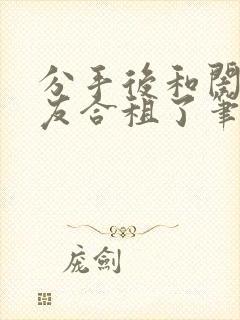 分手後和閨
友合租了筆
庞劍